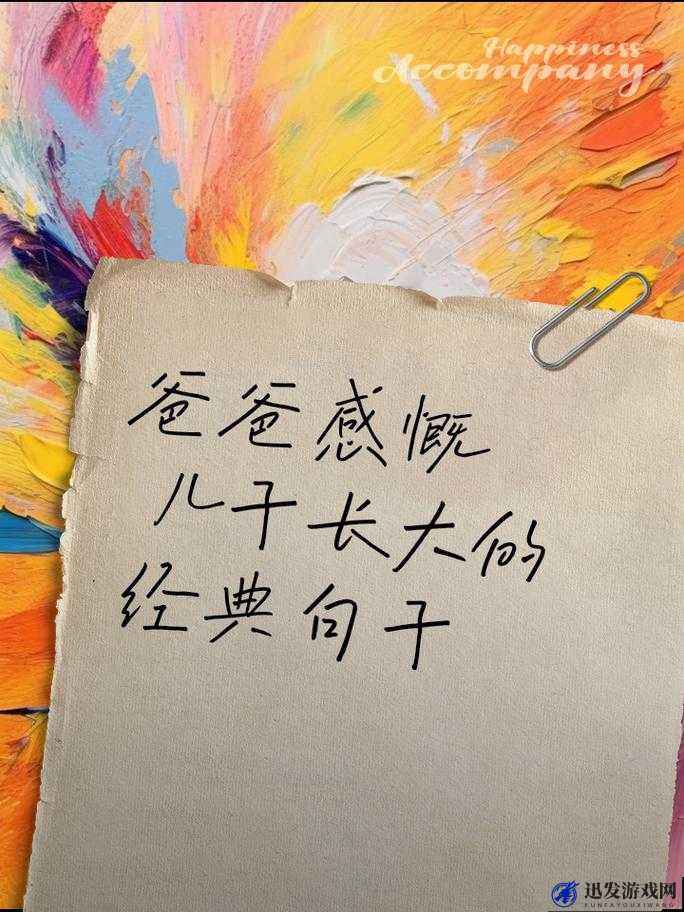 Happiness
Accompany
爸爸感慨
儿子长大的
经典句子
迅发游戏网
XUNFAYOUXIWANG